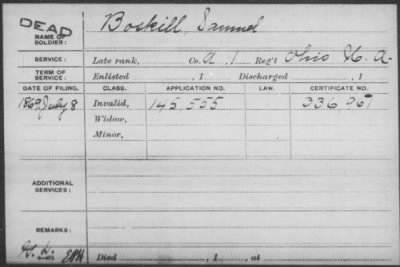 DEAD
NAME OF SOLDIER: Boskill, Samuel
SERVICE: Late rank, Co. A, 1 Reg't Ohio H. A.
TERM OF SERVICE: Enlisted , 1 Discharged , 1
DATE OF FILING. CLASS. APPLICATION NO. LAW. CERTIFICATE NO.
1869 July 8 Invalid, 145 555 336 967
Widow,
Minor,
ADDITIONAL SERVICES:
REMARKS:
Died , 1 , at